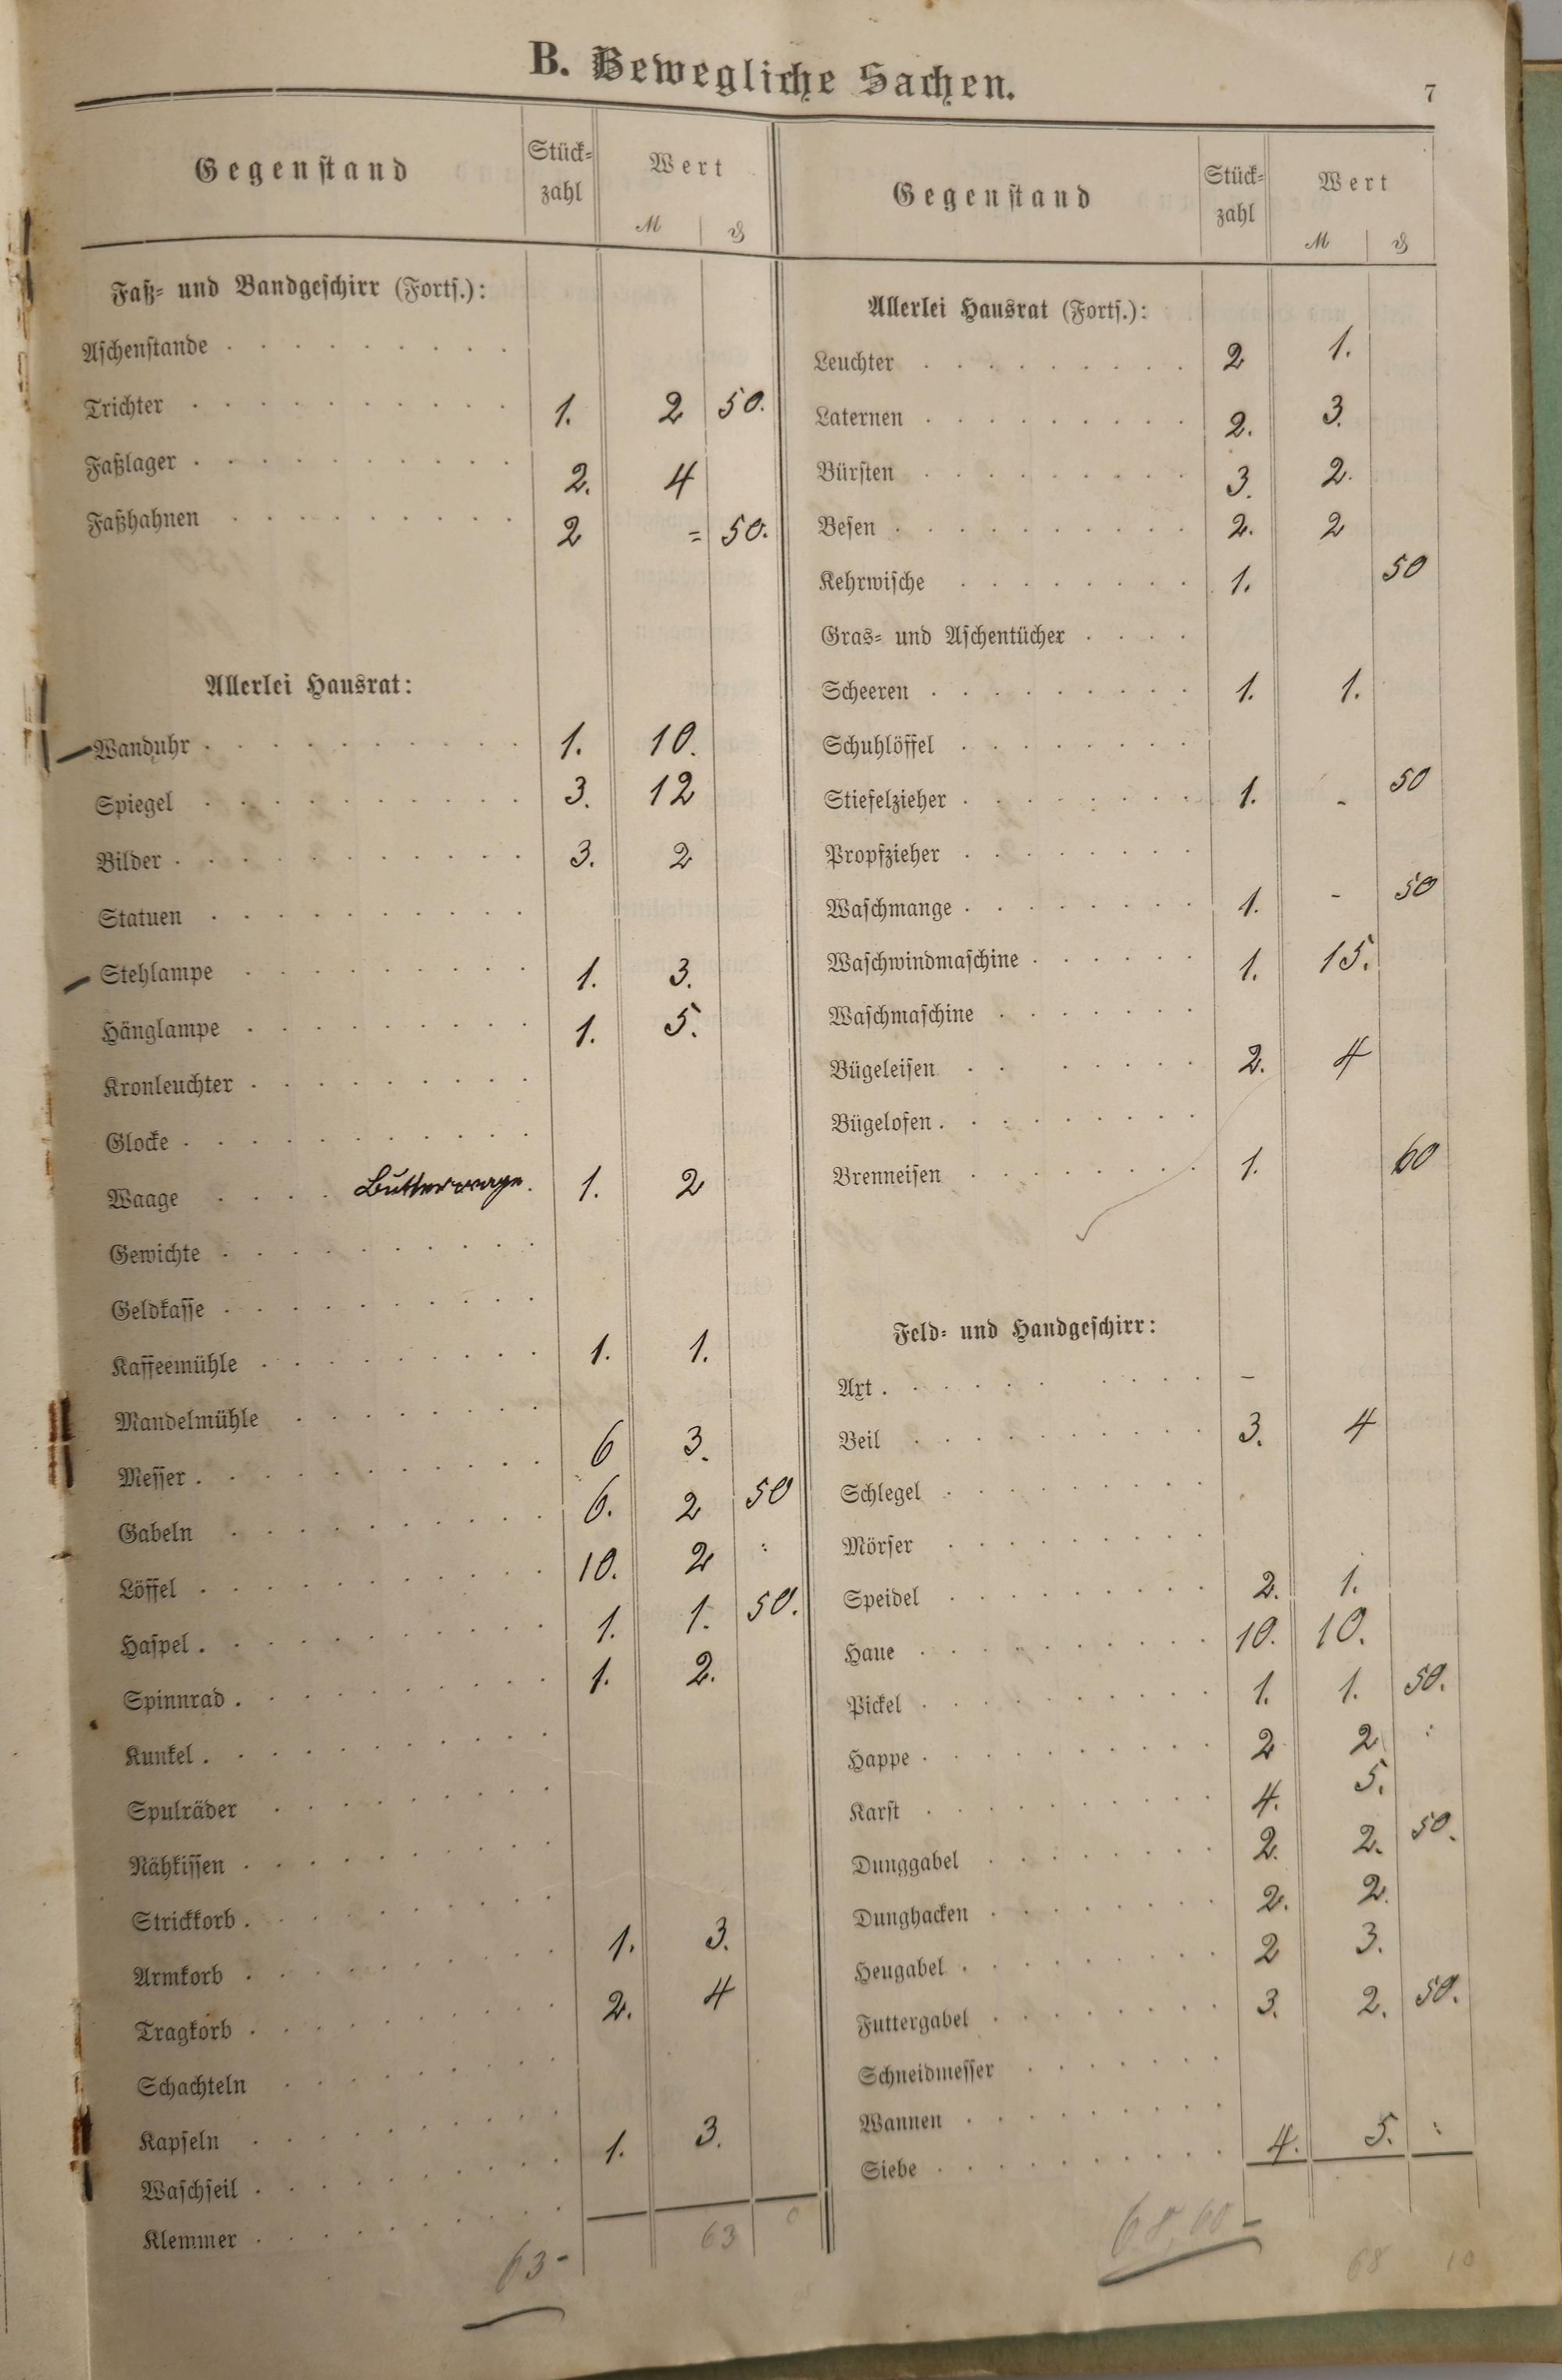 B. Bewegliche Sachen.
7
Gegenstand Stück-zahl Wert M ₰
Faß- und Bandgeschirr (Forts.):
Aschenstande
Trichter 1. 2 50.
Faßlager 2. 4
Faßhahnen 2 = 50.
Allerlei Hausrat:
Wanduhr 1. 10.
Spiegel 3. 12
Bilder 3. 2
Statuen
Stehlampe 1. 3.
Hänglampe 1. 5.
Kronleuchter
Glocke
Waage Butterwage. 1. 2
Gewichte
Geldkasse
Kaffeemühle 1. 1.
Mandelmühle
Messer 6 3.
Gabeln 6. 2 50
Löffel 10. 2 :
Haspel 1. 1. 50.
Spinnrad 1. 2.
Kunkel
Spulräder
Nähkissen
Strickkorb
Armkorb 1. 3.
Tragkorb 2. 4
Schachteln
Kapseln
Waschseil 1. 3.
Klemmer
63 -
63
Gegenstand Stück-zahl Wert M ₰
Allerlei Hausrat (Forts.):
Leuchter 2 1.
Laternen 2. 3.
Bürsten 3. 2.
Besen 2. 2
Kehrwische 1. 50
Gras- und Aschentücher
Scheeren 1. 1.
Schuhlöffel
Stiefelzieher 1. - 50
Propfzieher
Waschmange 1. - 50
Waschwindmaschine 1. 15.
Waschmaschine
Bügeleisen 2. 4
Bügelofen
Brenneisen 1. 60
Feld- und Handgeschirr:
Axt –
Beil 3. 4
Schlegel
Mörser
Speidel 2. 1.
Haue 10. 10.
Pickel 1. 1. 50.
Happe 2 2 :
Karst 4. 5.
Dunggabel 2. 2. 50.
Dunghacken 2. 2.
Heugabel 2 3.
Futtergabel 3. 2. 50.
Schneidmesser
Wannen
Siebe 4. 5. :
68,60 -
68 10